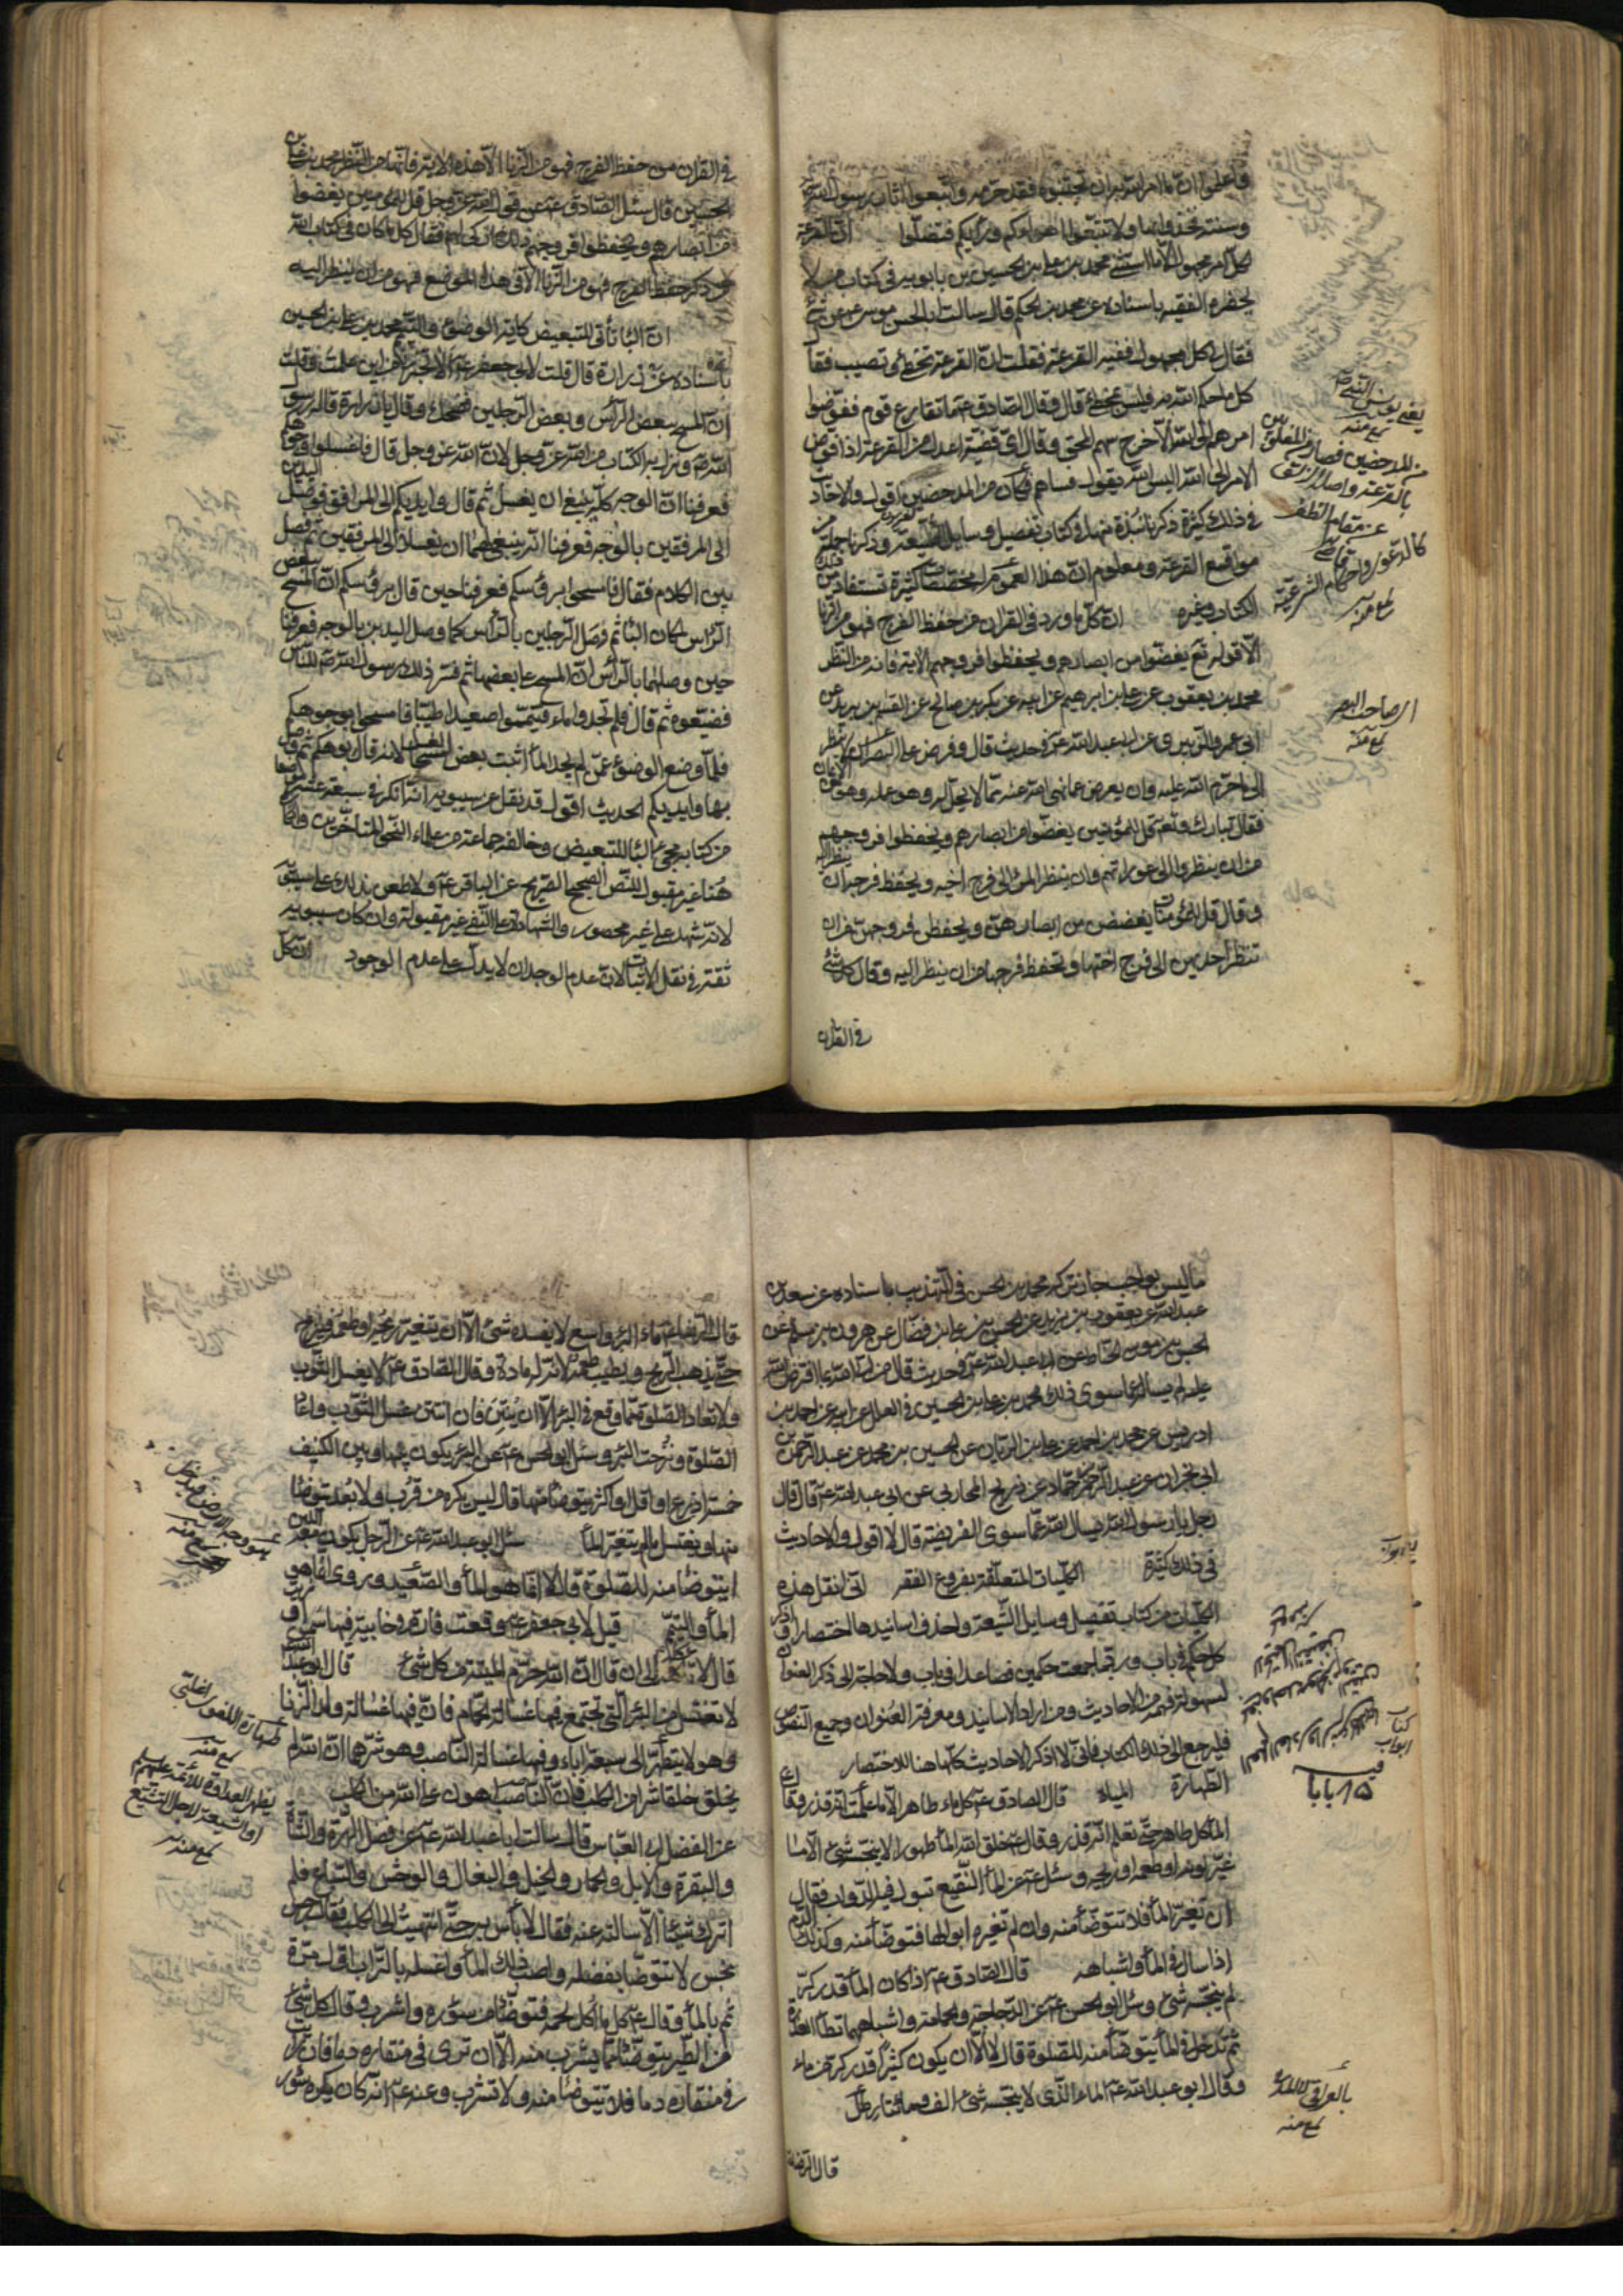 فاعلموا ان ما امر الله به ان تجتنبوه فقد حرمه واتبعوا اثار رسول الله
وسنته فخذوا بها ولا تتبعوا اهواءكم ورأيكم فتضلوا ان القرعة
لكل امر مجهول الا ما استثنى محمد بن علي بن الحسين بن بابويه في كتاب من لا
يحضره الفقيه باسناده عن محمد بن الحكم قال سالت ابا الحسن موسى ع عن شئ
فقال كل مجهول ففيه القرعة فقلت ان القرعة تخطئ وتصيب فقا
كل ما حكم الله به فليس بمخطئ قال وقال الصادق ع ما تقارع قوم ففوضوا
امرهم الى الله الا خرج سهم المحق وقال اى قضية اعدل من القرعة اذا فوض
الامر الى الله اليس الله يقول فساهم فكان من المدحضين اقول والاحاديث
في ذلك كثيرة ذكرنا نبذة منها في كتاب تفصيل وسايل الشيعة وذكرنا جملة من
مواقع القرعة ومعلوم ان هذا العموم له مخصصات كثيرة تستفاد من ذلك
الكتاب وغيره ان كل ما ورد في القران من حفظ الفرج فهو من الزنا
الا قوله تع يغضوا من ابصارهم ويحفظوا فروجهم الاية فانه من النظر
محمد بن يعقوب عن علي بن ابراهيم عن ابيه عن بكر بن صالح عن القسم بن بريد عن
ابى عمرو الزبيرى عن ابى عبد الله ع في حديث قال وفرض على البصر ان لا ينظر
الى ما حرم الله عليه وان يعرض عما نهى الله عنه مما لا يحل له وهو عمله وهو من الايمان
فقال تبارك وتع قل للمؤمنين يغضوا من ابصارهم ويحفظوا فروجهم
من ان ينظروا الى عوراتهم وان ينظر المرء الى فرج اخيه ويحفظ فرجه ان ينظر اليه
وقال قل للمؤمنات يغضضن من ابصارهن ويحفظن فروجهن من ان
تنظر احديهن الى فرج اختها وتحفظ فرجها من ان ينظر اليه وقال كل شئ
في القران
يعنى يونس النبى
منه
من المدحضين فصار من المغلوبين
بالقرعة واصله الزلق
عن مقام الظفر
كالدعوى واحكام الشرعية
منه
في القران من حفظ الفرج فهو من الزنا الا هذه الاية فانها من النظر محمد بن علي بن
الحسين قال سئل الصادق ع عن قول الله عز وجل قل للمؤمنين يغضوا
من ابصارهم ويحفظوا فروجهم ذلك ازكى لهم فقال كل ما كان في كتاب الله
من ذكر حفظ الفرج فهو من الزنا الا في هذا الموضع فهو من ان ينظر اليه
ان الباء تأتى للتبعيض كاية الوضوء والتيمم محمد بن علي بن الحسين
باسناده عن زرارة قال قلت لابى جعفر ع الا تخبرنى من اين علمت وقلت
ان المسح ببعض الرأس وبعض الرجلين فضحك وقال يا زرارة قاله رسول
الله ص ونزل به الكتاب من الله عز وجل لان الله عز وجل قال فاغسلوا وجوهكم
فعرفنا ان الوجه كله ينبغى ان يغسل ثم قال وايديكم الى المرافق فوصل اليدين
الى المرفقين بالوجه فعرفنا انه ينبغى لهما ان يغسلا الى المرفقين ثم فصل
بين الكلام فقال وامسحوا برؤسكم فعرفنا حين قال برؤسكم ان المسح ببعض
الرأس لمكان الباء ثم وصل الرجلين بالرأس كما وصل اليدين بالوجه فعرفنا
حين وصلهما بالرأس ان المسح على بعضها ثم فسر ذلك رسول الله ص للناس
فضيعوه ثم قال فلم تجدوا ماء فتيمموا صعيدا طيبا فامسحوا بوجوهكم
فلما وضع الوضوء عمن لم يجد الماء اثبت بعض الغسل مسحا لانه قال بوجوهكم ثم وصل
بها وايديكم الحديث اقول قد نقل عن سيبويه انه انكر في سبعة عشر موضعا
من كتابه مجئ الباء للتبعيض وخالفه جماعة من علماء النحو المتاخرين وانكاره
هنا غير مقبول للنص الصحيح الصريح عن الباقر ع ولا طعن بذلك على سيبويه
لانه شهد على غير محصور والشهادة على النفى غير مقبولة وان كان سيبويه
ثقة في نقل الاثبات لان عدم الوجدان لا يدل على عدم الوجود ان كل
ما ليس بواجب جاز تركه محمد بن الحسن في التهذيب باسناده عن سعد بن
عبد الله عن يعقوب بن يزيد عن الحسن بن علي بن فضال عن هرون بن مسلم عن
الحسن بن موسى الحناط عن ابى عبد الله ع في حديث قال من اتى الله بما افترض الله
عليه لم يساله عما سوى ذلك محمد بن علي بن الحسين في العلل عن ابيه عن احمد بن
ادريس عن محمد بن احمد عن علي بن الريان عن الحسين بن محمد عن عبد الرحمن بن
ابى نجران عن عبد الرحمن بن حماد عن ذريح المحاربى عن ابى عبد الله ع قال قال
رجل يا رسول الله يسال الله عما سوى الفريضة قال لا اقول والاحاديث
في ذلك كثيرة الكليات المتعلقة بفروع الفقه انى انقل هذه
الكليات من كتاب تفصيل وسايل الشيعة واحذف اسانيدها اختصارا واذكر
كل حكم في باب وربما جمعت حكمين فصاعدا في باب ولا حاجة الى ذكر العنوان
لسهولة فهمه من الاحاديث ومن اراد الاسانيد ومعرفة العنوان وجميع النصوص
فليرجع الى ذلك الكتاب فانى لا اذكر الاحاديث كلها هنا للاختصار
الطهارة المياه قال الصادق ع كل ماء طاهر الا ما علمت انه قذر وقال
الماء كله طاهر حتى تعلم انه قذر وقال ع خلق الله الماء طهورا لا ينجسه شئ الا ما
غير لونه او طعمه او ريحه وسئل ع عن الماء النقيع تبول فيه الدواب فقال
ان تغير الماء فلا تتوضأ منه وان لم تغيره ابوالها فتوضأ منه وكذلك الدم
اذا سال في الماء واشباهه قال الصادق ع اذا كان الماء قدر كر
لم ينجسه شئ وسئل ابو الحسن ع عن الدجاجة والحمامة واشباههما تطأ العذرة
ثم تدخل في الماء يتوضأ منه للصلوة قال لا الا ان يكون كثيرا قدر كر من ماء
وقال ابو عبد الله ع الماء الذى لا ينجسه شئ الف ومائتا رطل
قال الرضا
كتاب
ابواب
١٥ بابا
بالعراقى
منه
قال الرضا ع ماء البئر واسع لا يفسده شئ الا ان يتغير ريحه او طعمه فينزح
حتى يذهب الريح ويطيب طعمه لانه له مادة وقال الصادق ع لا يغسل الثوب
ولا تعاد الصلوة مما وقع في البئر الا ان ينتن فان انتن غسل الثوب واعاد
الصلوة ونزحت البئر وسئل ابو الحسن ع عن البئر يكون بينها وبين الكنيف
خمسة اذرع او اقل او اكثر يتوضأ منها قال ليس يكره من قرب ولا بعد يتوضأ
منها ويغتسل ما لم يتغير الماء سئل ابو عبد الله ع عن الرجل يكون معه اللبن
ايتوضأ منه للصلوة قال لا انما هو الماء والصعيد وروى انما هو
الماء والتيمم قيل لابى جعفر ع وقعت فارة في خابية فيها سمن او زيت
قال لا تاكله الى ان قال ان الله حرم الميتة من كل شئ قال ابو عبد الله ع
لا تغتسل من البئر التى تجتمع فيها غسالة الحمام فان فيها غسالة ولد الزنا
وهو لا يتطهر الى سبعة اباء وفيها غسالة الناصب وهو شرهما ان الله لم
يخلق خلقا شرا من الكلب وان الناصب اهون على الله من الكلب
عن الفضل ابى العباس قال سالت ابا عبد الله ع عن فضل الهرة والشاة
والبقرة والابل والحمار والخيل والبغال والوحش والسباع فلم
اترك شيئا الا سالته عنه فقال لا بأس به حتى انتهيت الى الكلب فقال رجس
نجس لا تتوضأ بفضله واصبب ذلك الماء واغسله بالتراب اول مرة
ثم بالماء وقال ع كل ما اكل لحمه فتوضأ من سؤره واشرب وقال كل شئ
من الطير يتوضأ مما يشرب منه الا ان ترى في منقاره دما فان رايت
في منقاره دما فلا تتوضأ منه ولا تشرب وعنه ع انه كان يكره سؤر